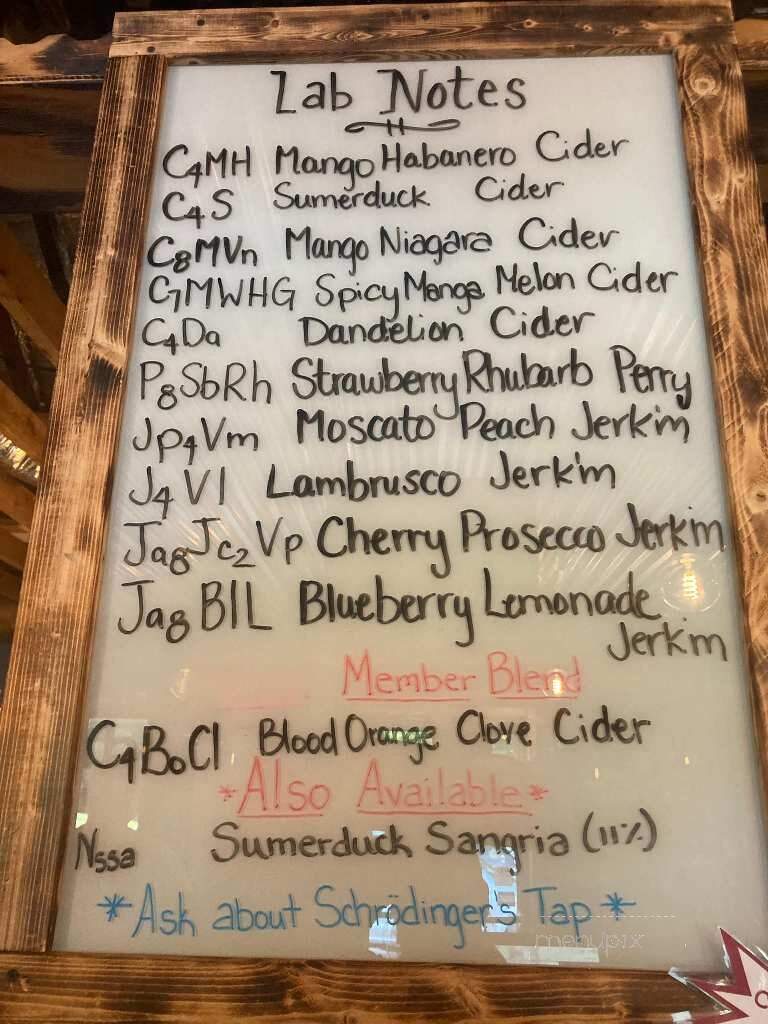 Lab Notes
C4MH Mango Habanero Cider
C4S Sumerduck Cider
C8MVn Mango Niagara Cider
GMWHG Spicy Mango Melon Cider
C4Da Dandelion Cider
P8SbRh Strawberry Rhubarb Perry
Jp4Vm Moscato Peach Jerk'm
J4Vl Lambrusco Jerk'm
Ja8Jc2Vp Cherry Prosecco Jerk'm
Ja8BlL Blueberry Lemonade
Jerk'm
Member Blend
C4BoCl Blood Orange Clove Cider
*Also Available*
Nssa Sumerduck Sangria (11%)
*Ask about Schrödinger's Tap*
menupix